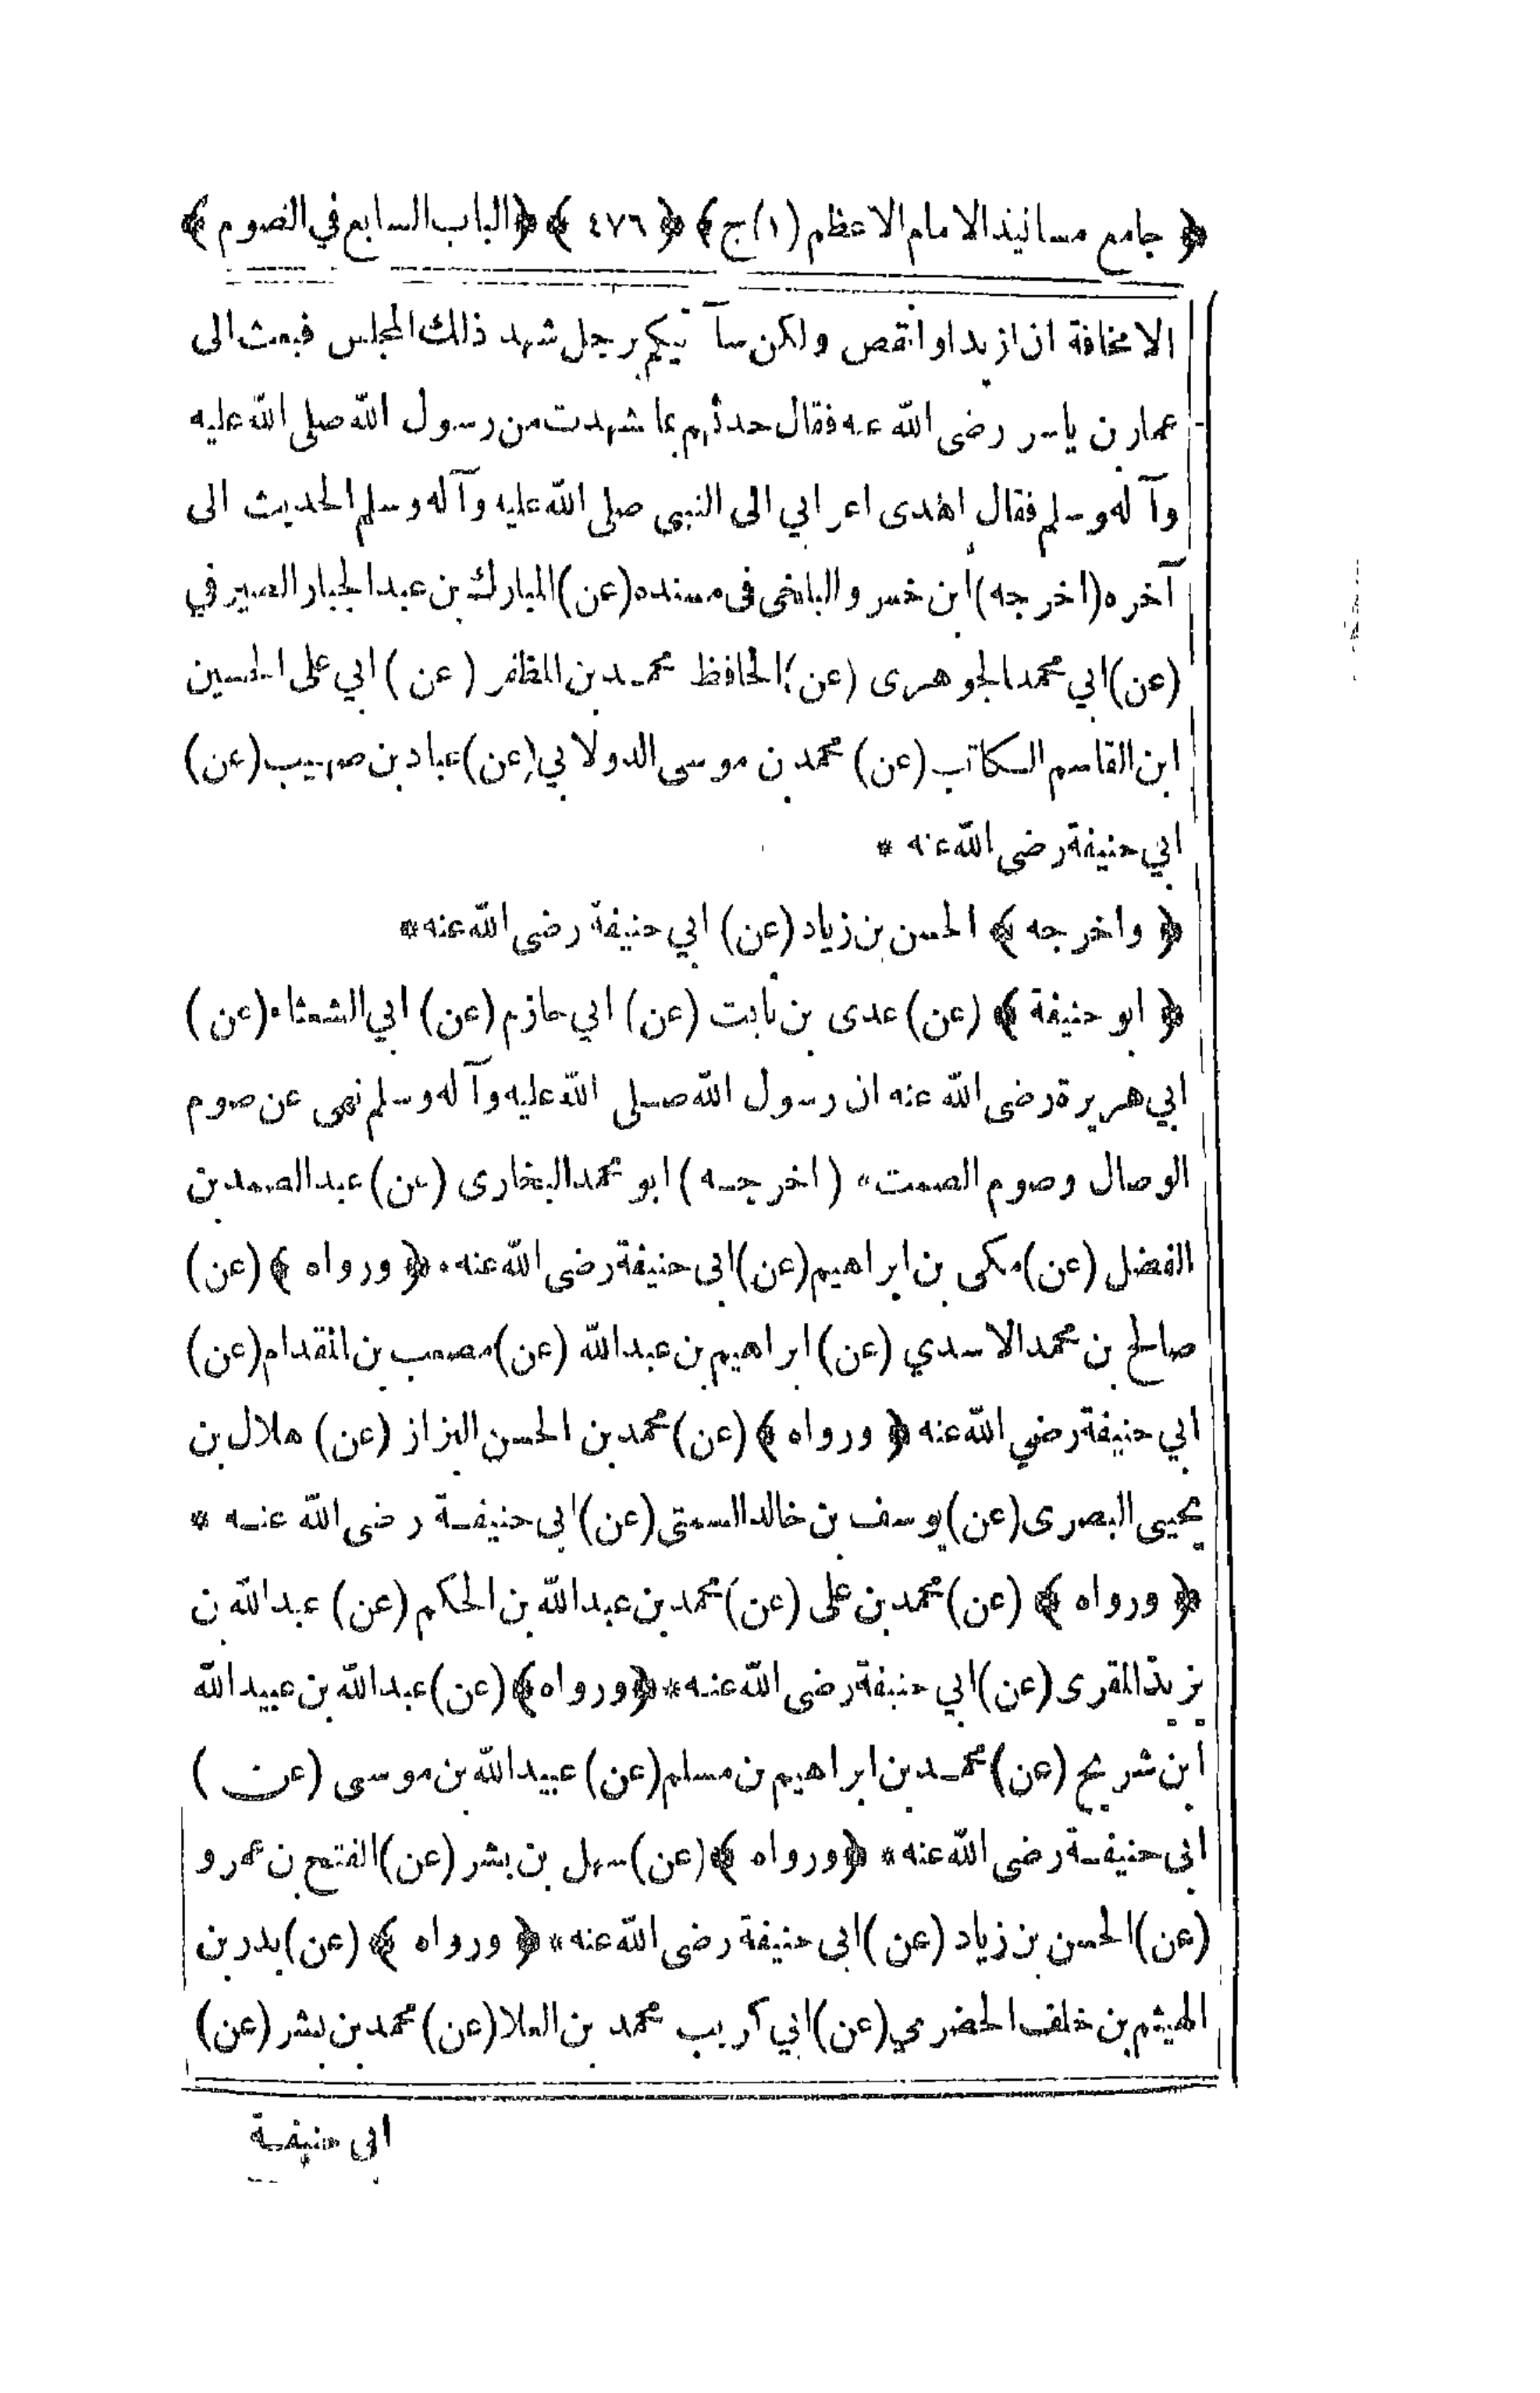 ﴿ جامع مسانيد الامام الاعظم (١) ج﴾ ﴿ ٤٧٦ ﴾ ﴿الباب السابع في الصوم ﴾
الا مخافة ان ازيد او انقص ولكن سآتيكم برجل شهد ذلك المجلس فبعث الى
عمار بن ياسر رضى الله عنه فقال حدثهم بما شهدت من رسول الله صلى الله عليه
وآله وسلم فقال اهدى اعرابي الى النبى صلى الله عليه وآله وسلم الحديث الى
آخره (اخرجه) ابن خسرو البلخى فى مسنده (عن) المبارك بن عبد الجبار الصيرفي
(عن) ابي محمد الجوهرى (عن) الحافظ محمد بن المظفر (عن) ابي على الحسين
ابن القاسم الكاتب (عن) محمد بن موسى الدولابي (عن) عباد بن صهيب (عن)
ابي حنيفة رضى الله عنه *
﴿ واخرجه ﴾ الحسن بن زياد (عن) ابي حنيفة رضى الله عنه *
﴿ ابو حنيفة ﴾ (عن) عدى بن ثابت (عن) ابي حازم (عن) ابي الشعثاء (عن)
ابي هريرة رضى الله عنه ان رسول الله صلى الله عليه وآله وسلم نهى عن صوم
الوصال وصوم الصمت * (اخرجه) ابو محمد البخارى (عن) عبد الصمد بن
الفضل (عن) مكى بن ابراهيم (عن) ابى حنيفة رضى الله عنه * ﴿ ورواه ﴾ (عن)
صالح بن محمد الاسدي (عن) ابراهيم بن عبد الله (عن) مصعب بن المقدام (عن)
ابي حنيفة رضي الله عنه ﴿ ورواه ﴾ (عن) محمد بن الحسن البزاز (عن) هلال بن
يحيى البصرى (عن) يوسف بن خالد السمتى (عن) ابى حنيفة رضى الله عنه *
﴿ ورواه ﴾ (عن) محمد بن على (عن) محمد بن عبد الله بن الحكم (عن) عبد الله بن
يزيد المقرى (عن) ابي حنيفة رضى الله عنه * ﴿ورواه﴾ (عن) عبد الله بن عبيد الله
ابن شريح (عن) محمد بن ابراهيم بن مسلم (عن) عبيد الله بن موسى (عن)
ابى حنيفة رضى الله عنه * ﴿ورواه ﴾ (عن) سهل بن بشر (عن) الفتح بن عمرو
(عن) الحسن بن زياد (عن) ابى حنيفة رضى الله عنه * ﴿ ورواه ﴾ (عن) بدر بن
الهيثم بن خلف الحضرمي (عن) ابي كريب محمد بن العلا (عن) محمد بن بشر (عن)
ابى حنيفة